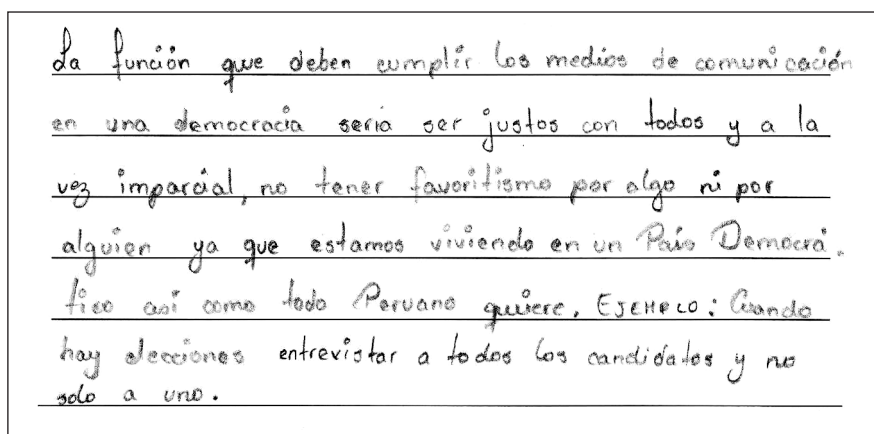 La función que deben cumplir los medios de comunicación
en una democracia seria ser justos con todos y a la
vez imparcial, no tener favoritismo por algo ni por
alguien ya que estamos viviendo en un País Democrá-
tico así como todo Peruano quiere. EJEMPLO: Cuando
hay elecciones entrevistar a todos los candidatos y no
solo a uno.